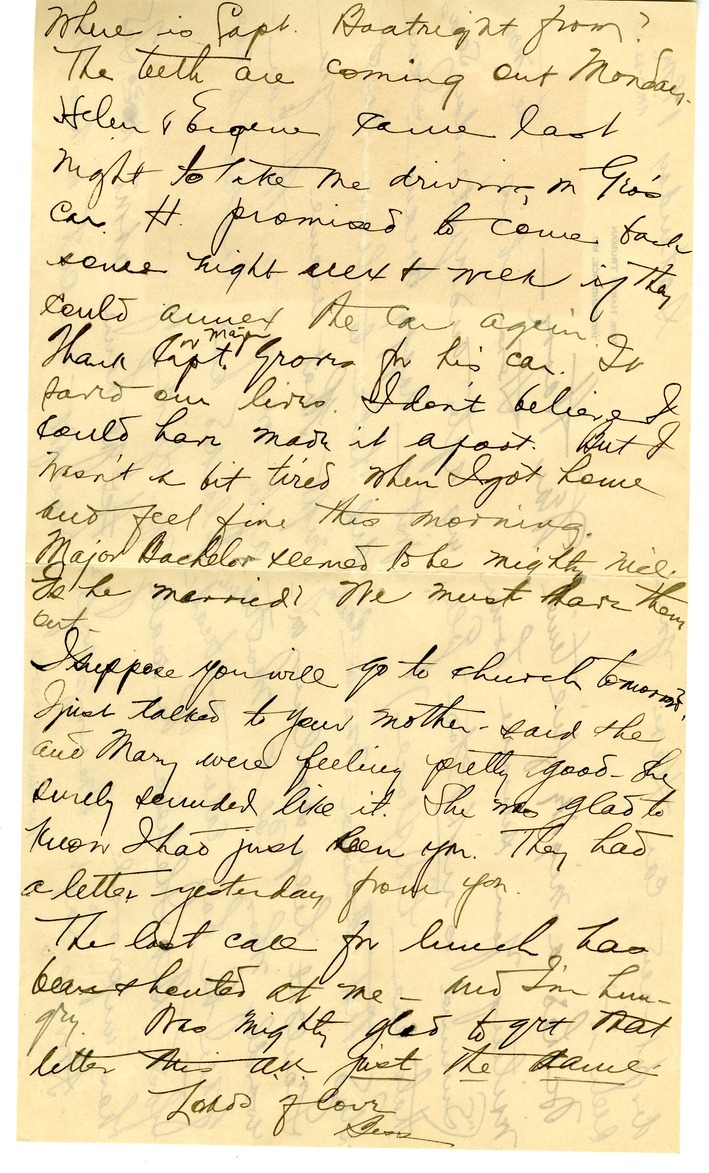 Where is Capt. Boatright from?
The teeth are coming out Monday.
Helen & Eugene came last
night to take me driving in Geo's
car. H. promised to come back
some night next week if they
could annex the car again.
Thank Capt. or Major Groves for his car. It
saved our lives. I don't believe I
could have made it afoot. But I
wasn't a bit tired when I got home
and feel fine this morning.
Major Bachelor seemed to be mighty nice.
Is he married? We must have them
out.
I suppose you will go to church tomorrow?
I just talked to your mother - said she
and Mary were feeling pretty good - They
surely sounded like it. She was glad to
know I had just seen you. They had
a letter yesterday from you.
The last call for lunch has
been shouted at me - and I'm hun-
gry. Was mighty glad to get that
letter this am just the same.
Loads of love
Bess